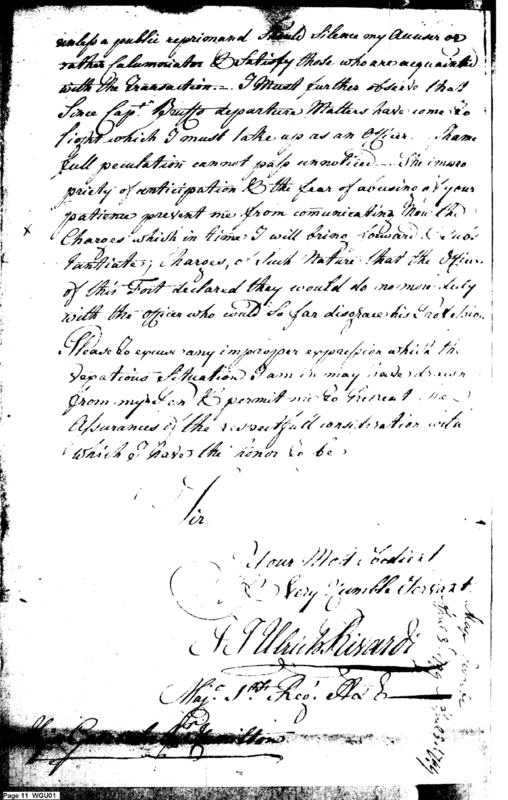 unless a public reprimand should Silence my Accuser or
rather Calumniator & Satisfy those who are acquainted
with the Transaction — I Must further observe that
Since Capt. Bruffs departure Matters have come to
light which I must take up as an Officer. Shame
full peculation cannot pass unnoticed — The impro
priety of anticipation & the fear of abusing of your
patience prevent me from communicating Now the
Charges which in time I will bring forward & Subs
tantiate; Charges, of Such Nature that the Officers
of this Fort declared they would do no more duty
with the officer who would So far disgrace his Profession
Please to excuse any improper expression which the
vexatious Situation I am in may have drawn
from my Pen & permit me to Itereat the
Assurances of the respectfull consideration with
which I have the honor to be
Sir
Your Most Obedient
& Very humble Servant
J J Ulrich Rivardi
Majr. 1st Regt. A & E
Major General Hamilton
Page 11 WGU01